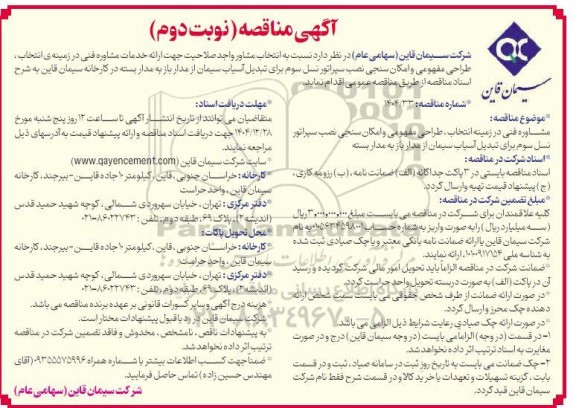 آگهی مناقصه (نوبت دوم)
شرکت سیمان قاین (سهامی عام) در نظر دارد نسبت به انتخاب مشاور واجد صلاحیت جهت ارائه خدمات مشاوره فنی در زمینه ی انتخاب،
طراحی مفهومی و امکان سنجی نصب سپراتور نسل سوم برای تبدیل آسیاب سیمان از مدار باز به مدار بسته در کارخانه سیمان قاین به شرح
اسناد مناقصه از طریق مناقصه عمومی اقدام نماید.
سیمان قاین
*شماره مناقصه: ۱۴۰۴/۳۳
*موضوع مناقصه:
مشاوره فنی در زمینه انتخاب، طراحی مفهومی و امکان سنجی نصب سپراتور
نسل سوم برای تبدیل آسیاب سیمان از مدار باز به مدار بسته
*اسناد شرکت در مناقصه:
اسناد مناقصه بایستی در ۳ پاکت جداگانه (الف) ضمانت نامه، (ب) رزومه کاری،
(ج) پیشنهاد قیمت تهیه و ارسال گردد.
*مبلغ تضمین شرکت در مناقصه:
کلیه علاقمندان برای شرکت در مناقصه می بایست مبلغ ۳،۰۰۰،۰۰۰،۰۰۰ ریال
(سه میلیارد ریال) را به صورت واریز به شماره حساب به نام
شرکت سیمان قاین یا ارائه ضمانت نامه بانکی معتبر و یا چک صیادی ثبت شده
به شناسه ملی ارائه نمایند.
*ضمانت شرکت در مناقصه الزاماً باید تحویل امور مالی شرکت گردیده و رسید
آن در پاکت (الف) به صورت دربسته تحویل واحد حراست گردد.
*در صورت ارائه ضمانت از طرف شخص حقوقی می بایست سمت شخص ارائه
دهنده چک محرز و ارسال گردد.
*در صورت ارائه چک صیادی رعایت شرایط ذیل الزامی می باشد.
۱- در قسمت (در وجه) الزاما می بایست (در وجه سیمان قاین) درج و در صورت
مغایرت به اسناد ترتیب اثر داده نخواهد شد.
۲- چک ضمانت می بایست به تاریخ روز ثبت در سامانه صیاد، ثبت و در قسمت
بابت، گزینه تسهیلات و تعهدات یا خرید کالا و در قسمت شرح فقط نام شرکت
سیمان قاین قید گردد.
*مهلت دریافت اسناد:
متقاضیان می توانند از تاریخ انتشار آگهی تا ساعت ۱۲ روز پنج شنبه مورخ
۱۴۰۴/۱۲/۲۸ جهت دریافت اسناد مناقصه و ارائه پیشنهاد قیمت به آدرسهای ذیل
مراجعه نمایند.
*سایت شرکت سیمان قاین (www.qayencement.com)
*کارخانه: خراسان جنوبی، قاین، کیلومتر ۱۰ جاده قاین - بیرجند، کارخانه
سیمان قاین، واحد حراست
*دفتر مرکزی: تهران، خیابان سهروردی شمالی، کوچه شهید حمید قدس
(اندیشه ۲)، پلاک ۶۹، طبقه دوم، تلفن: ۸۶۰۲۲۷۴۳-۰۲۱
*محل تحویل پاکات:
*کارخانه: خراسان جنوبی، قاین، کیلومتر ۱۰ جاده قاین - بیرجند، کارخانه
سیمان قاین، واحد حراست
*دفتر مرکزی: تهران، خیابان سهروردی شمالی، کوچه شهید حمید قدس
(اندیشه ۲)، پلاک ۶۹، طبقه دوم، تلفن: ۸۶۰۲۲۷۴۳-۰۲۱
هزینه درج آگهی و سایر کسورات قانونی بر عهده برنده مناقصه می باشد.
شرکت سیمان قاین در رد یا قبول پیشنهادات مختار است.
به پیشنهادات ناقص، نامشخص، مخدوش و فاقد تضمین شرکت در مناقصه
ترتیب اثر داده نخواهد شد.
*ضمناً جهت کسب اطلاعات بیشتر با شماره همراه ۰۹۳۵۵۵۷۵۹۹۶ (آقای
مهندس حسین زاده) تماس حاصل فرمایید.
شرکت سیمان قاین (سهامی عام)